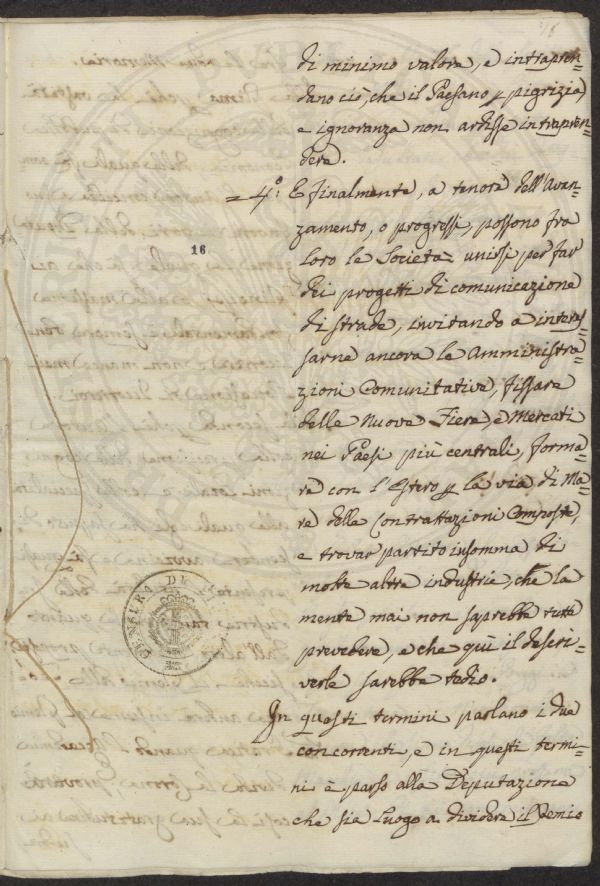 di minimo valore, e intrapren=
dano ciò, che il Paesano p pigrizia,
e ignoranza non ardisse intrapren=
dere.
= 4.° : E finalmente, a tenore dell'Avan=
zamento, o progressi, possono fra
16
loro le Società unirsi per far
dei progetti di comunicazione
di strade, invitando a interes=
sarne ancora le Amministra=
zioni Comunitative, fissare
delle nuove Fiere, e Mercati
nei Paesi più centrali, forma=
re con l'Estero p la via di Ma=
re delle Contrattazioni Composte,
e trovar partito insomma di
molte altre industrie, che la
mente mai non saprebbe tutte
prevedere, e che qui il descri=
verle sarebbe tedio.
In questi termini parlano i due
concorrenti, e in questi termi=
ni è parso alla Deputazione
che sia luogo a dividere il Premio